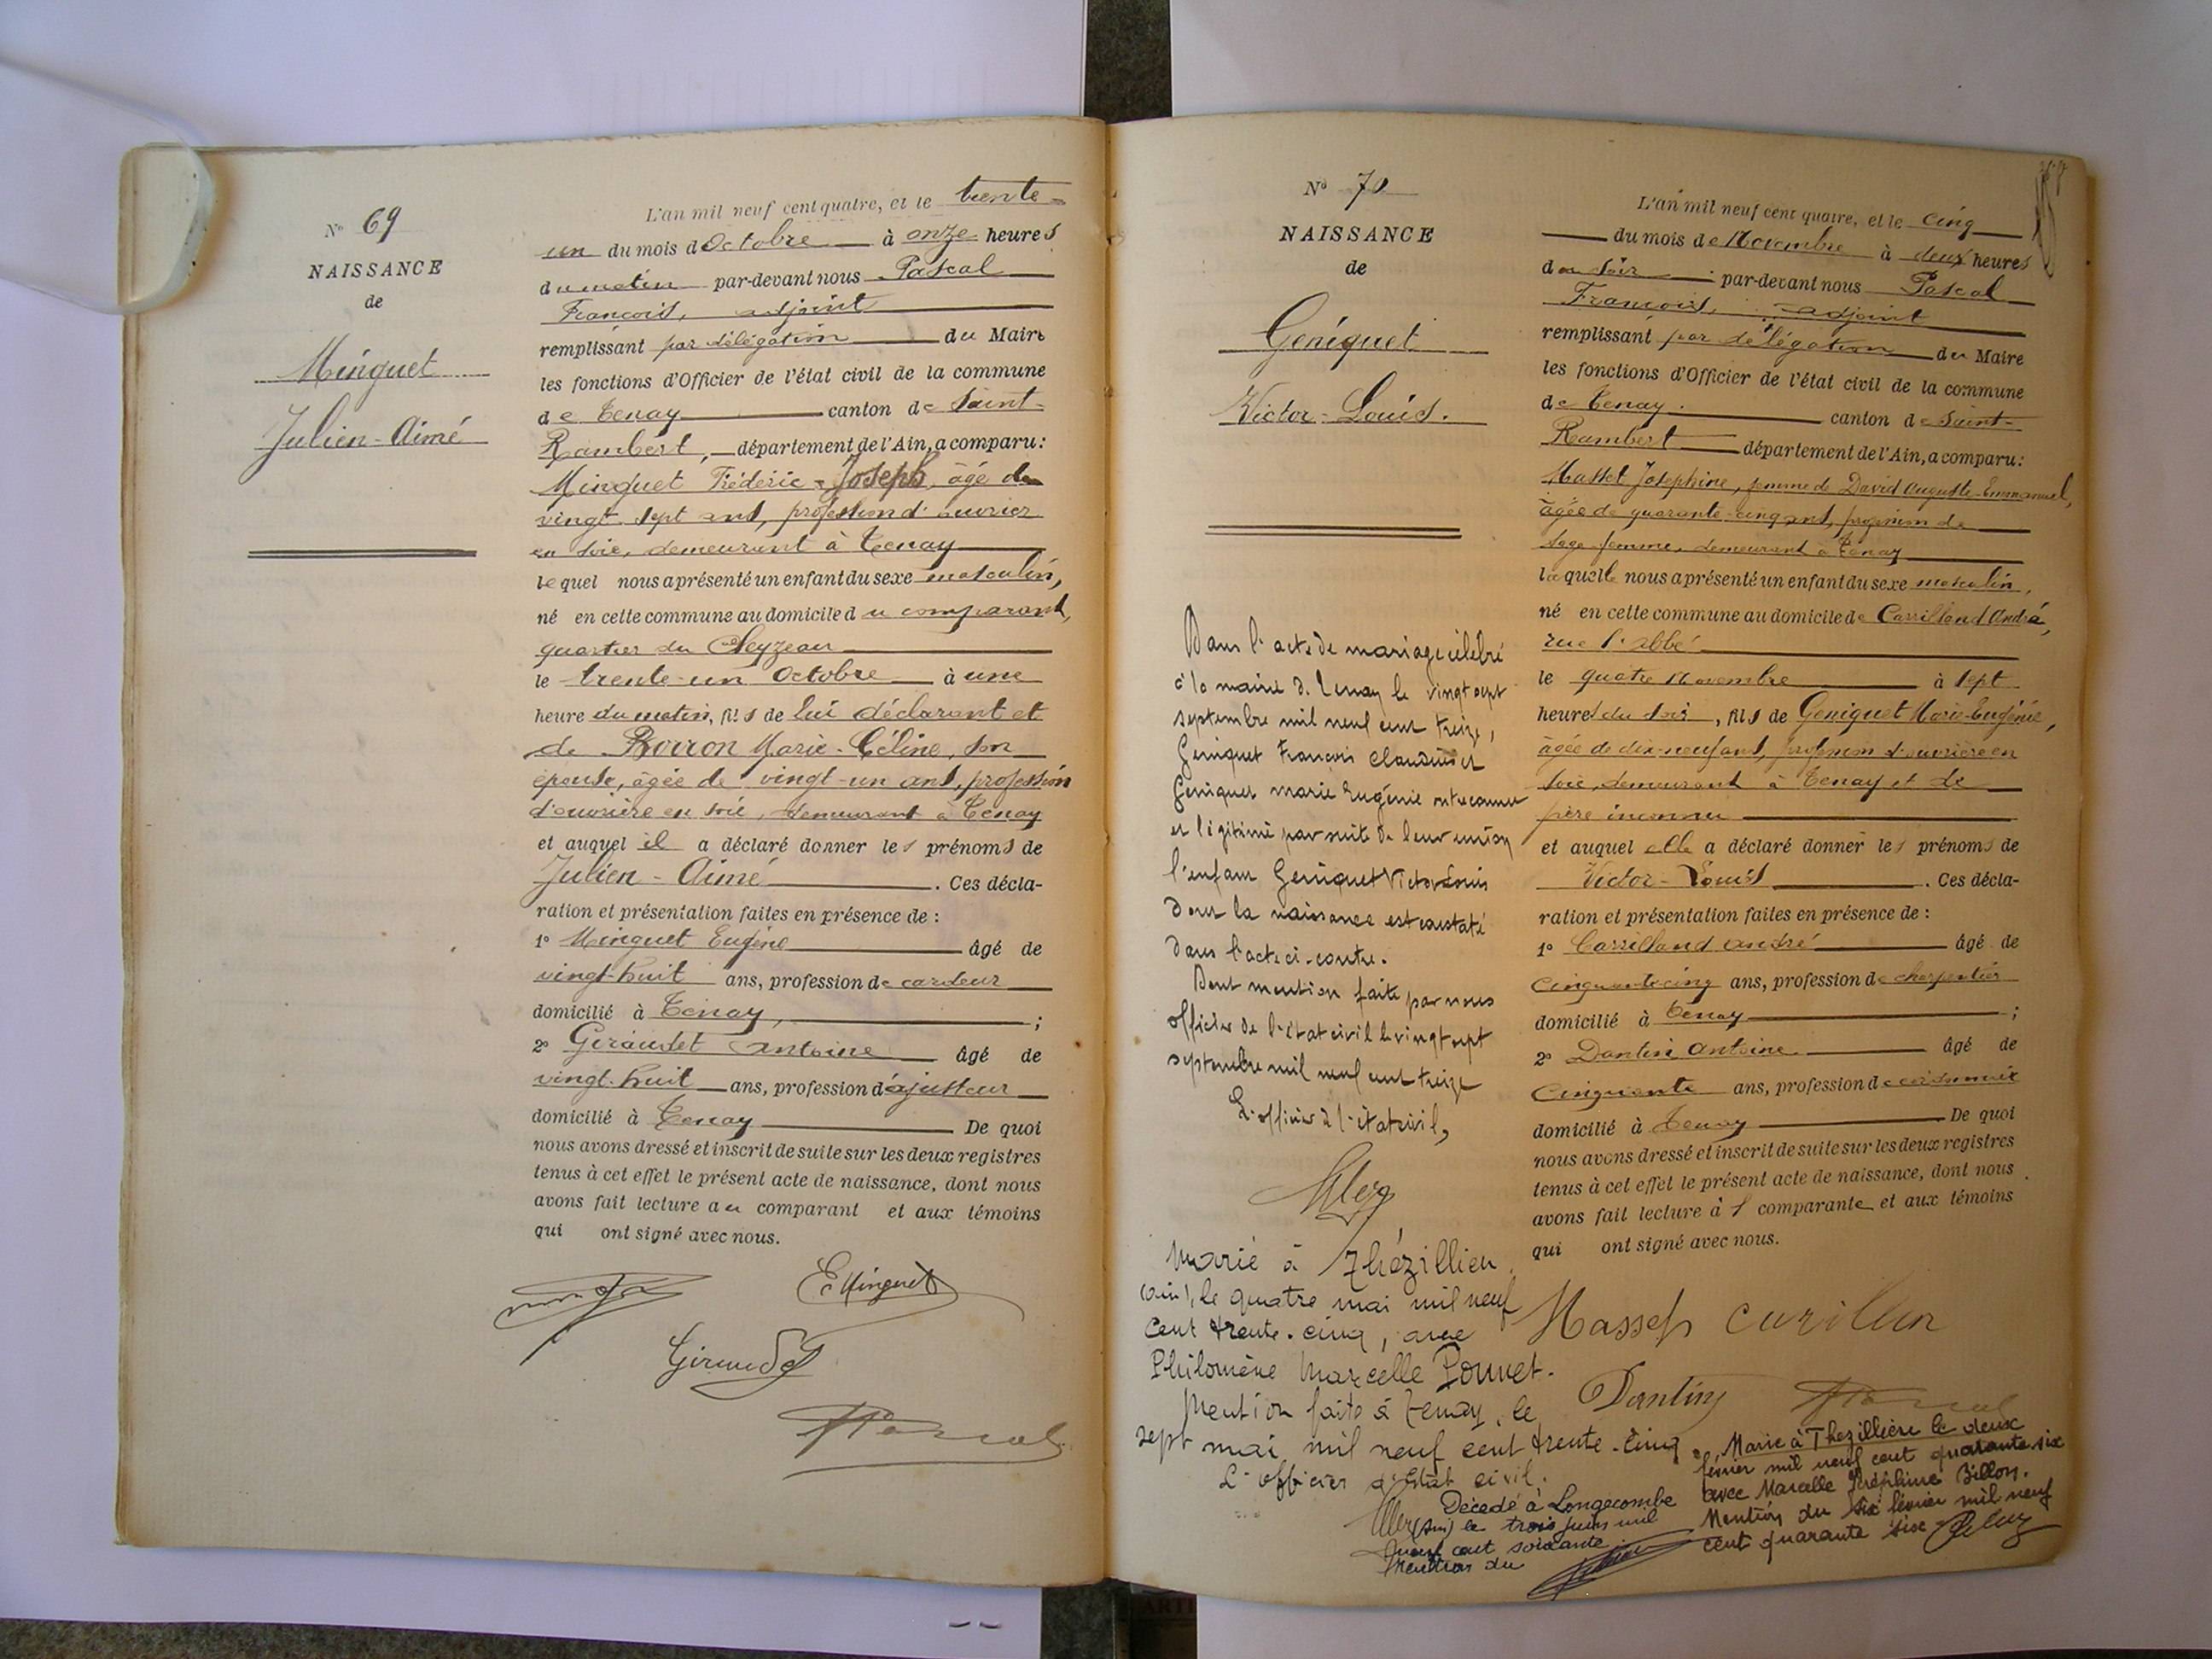 N° 69
NAISSANCE
de
Minguet
Julien-Aimé
L'an mil neuf cent quatre, et le trente
un du mois d'Octobre à onze heures
du matin par-devant nous Pascal
François, adjoint
remplissant par délégation du Maire
les fonctions d'Officier de l'état civil de la commune
de Tenay canton de Saint-
Rambert, département de l'Ain, a comparu :
Minguet Frédéric-Joseph, âgé de
vingt-sept ans, profession d'ouvrier
en soie, demeurant à Tenay
lequel nous a présenté un enfant du sexe masculin,
né en cette commune au domicile du comparant,
quartier du
le trente-un Octobre à une
heure du matin, fils de lui déclarant et
de Borron Marie-Céline, son
épouse, âgée de vingt-un ans, profession
d'ouvrière en soie, demeurant à Tenay
et auquel il a déclaré donner les prénoms de
Julien-Aimé. Ces décla-
ration et présentation faites en présence de :
1° Minguet Eugène âgé de
vingt-huit ans, profession de cardeur
domicilié à Tenay, ;
2° Giraudet Antoine âgé de
vingt-huit ans, profession d'ajusteur
domicilié à Tenay De quoi
nous avons dressé et inscrit de suite sur les deux registres
tenus à cet effet le présent acte de naissance, dont nous
avons fait lecture au comparant et aux témoins
qui ont signé avec nous.
E Minguet
Giraudet
Pascal
N° 70
NAISSANCE
de
Geniquet
Victor-Louis.
Dans l'acte de mariage célébré
à la mairie de Tenay le vingt sept
septembre mil neuf cent treize,
Geniquet François Claudius et
Geniquet Marie Eugénie ont reconnu
et légitimé par suite de leur union
l'enfant Geniquet Victor Louis
dont la naissance est constatée
dans l'acte ci-contre.
Dont mention faite par nous
officier de l'état civil le vingt sept
septembre mil neuf cent treize
L'officier de l'état civil,
Marié à Thézillieu
(Ain), le quatre mai mil neuf
cent trente-cinq, avec
Philomène Marcelle Ponnet.
Mention faite à Tenay, le
sept mai mil neuf cent trente-cinq
L'officier d'Etat civil.
Décédé à Longecombe
(Ain) le trois juin mil
neuf cent soixante
Mention du
L'an mil neuf cent quatre, et le cinq
du mois de Novembre à deux heures
du soir par-devant nous Pascal
François, adjoint
remplissant par délégation du Maire
les fonctions d'Officier de l'état civil de la commune
de Tenay. canton de Saint-
Rambert département de l'Ain, a comparu :
Masset Josephine, femme de David Auguste-Emmanuel,
âgée de quarante-cinq ans, profession de
sage-femme, demeurant à Tenay
laquelle nous a présenté un enfant du sexe masculin,
né en cette commune au domicile de Carrilland André,
rue l'abbé
le quatre Novembre à sept
heures du soir, fils de Geniquet Marie-Eugénie,
âgée de dix-neuf ans, profession d'ouvrière en
soie, demeurant à Tenay et de
père inconnu
et auquel elle a déclaré donner les prénoms de
Victor-Louis. Ces décla-
ration et présentation faites en présence de :
1° Carrilland André âgé de
cinquante-cinq ans, profession de charpentier
domicilié à Tenay ;
2° Dantin Antoine âgé de
cinquante ans, profession de cordonnier
domicilié à Tenay De quoi
nous avons dressé et inscrit de suite sur les deux registres
tenus à cet effet le présent acte de naissance, dont nous
avons fait lecture à la comparante et aux témoins
qui ont signé avec nous.
Masset Carilan
Dantin Pascal
Marié à Thezillieu le deux
février mil neuf cent quarante six
avec Marcelle Joséphine Billon.
Mention du six février mil neuf
cent quarante six